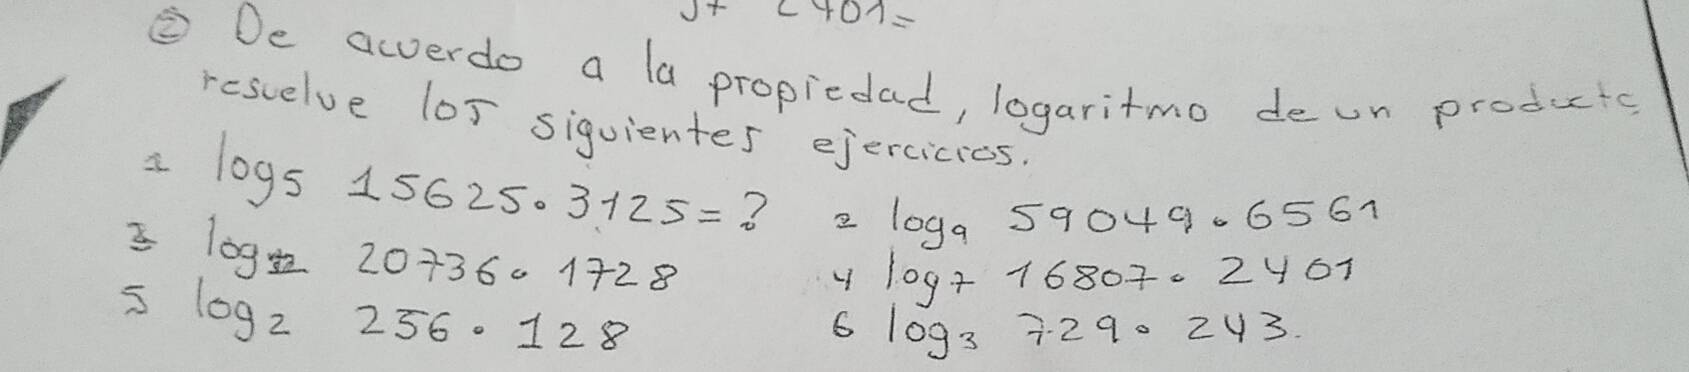 2401=
② De acuerdo a la propiedad, logaritmo de un producto
resuelve los siguientes ejercicios.
1 log5 15625•3125=? 2 log9 59049•6561
3 log12 20736•1728 4 log7 16807•2401
5 log2 256•128 6 log3 729•243.